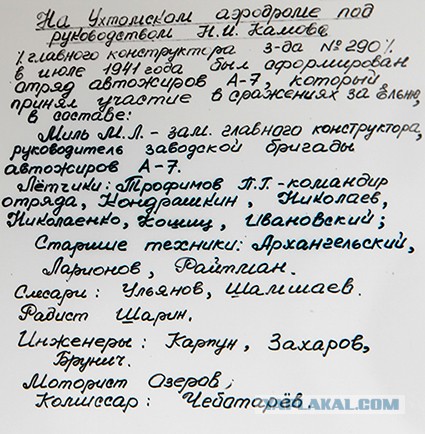 На Ухтомском аэродроме под
руководством Н.И. Камова
% главного конструктора з-да № 290 %
в июле 1941 года был сформирован
отряд автожиров А-7, который
принял участие в сражениях за Ельню,
в составе:
Миль М.Л. - зам. главного конструктора,
руководитель заводской бригады
автожиров А-7.
Лётчики: Трофимов П.Г. - командир
отряда, Кондрашкин, Николаев,
Николаенко, Кошиц, Ивановский;
Старшие техники: Архангельский,
Ларионов, Райтман.
Слесари: Ульянов, Шамшаев.
Радист Шарин.
Инженеры: Карпун, Захаров,
Брунич.
Моторист Озеров;
Комиссар: Чебатарёв.
YAPLAKAL.COM